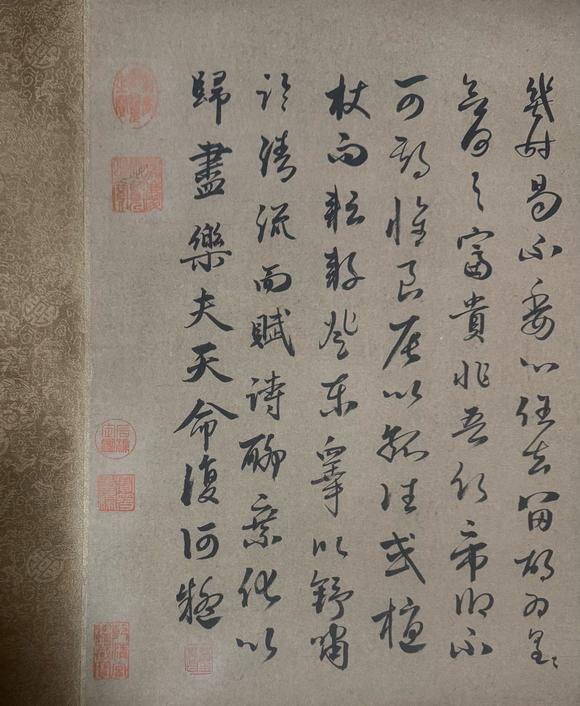 幾時曷不委心任去留胡為皇〻
欲何之富貴非吾願帝鄉不
可期懷良辰以孤往或植
杖而耘耔登東皋以舒嘯
臨清流而賦詩聊乘化以
歸盡樂夫天命復何疑